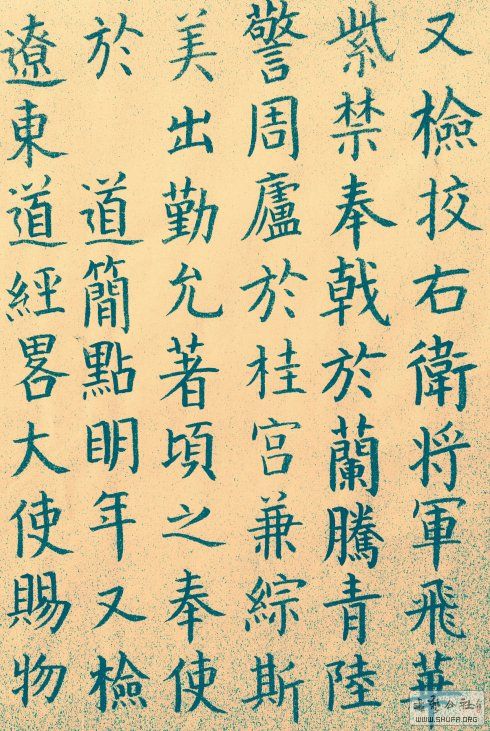 又檢挍右衛将軍飛華
紫禁奉戟於蘭騰青陸
警周廬於桂宮兼綜斯
美出勤允著頃之奉使
於 道簡點明年又檢
遼東道經畧大使賜物
WWW.SHUFA.ORG